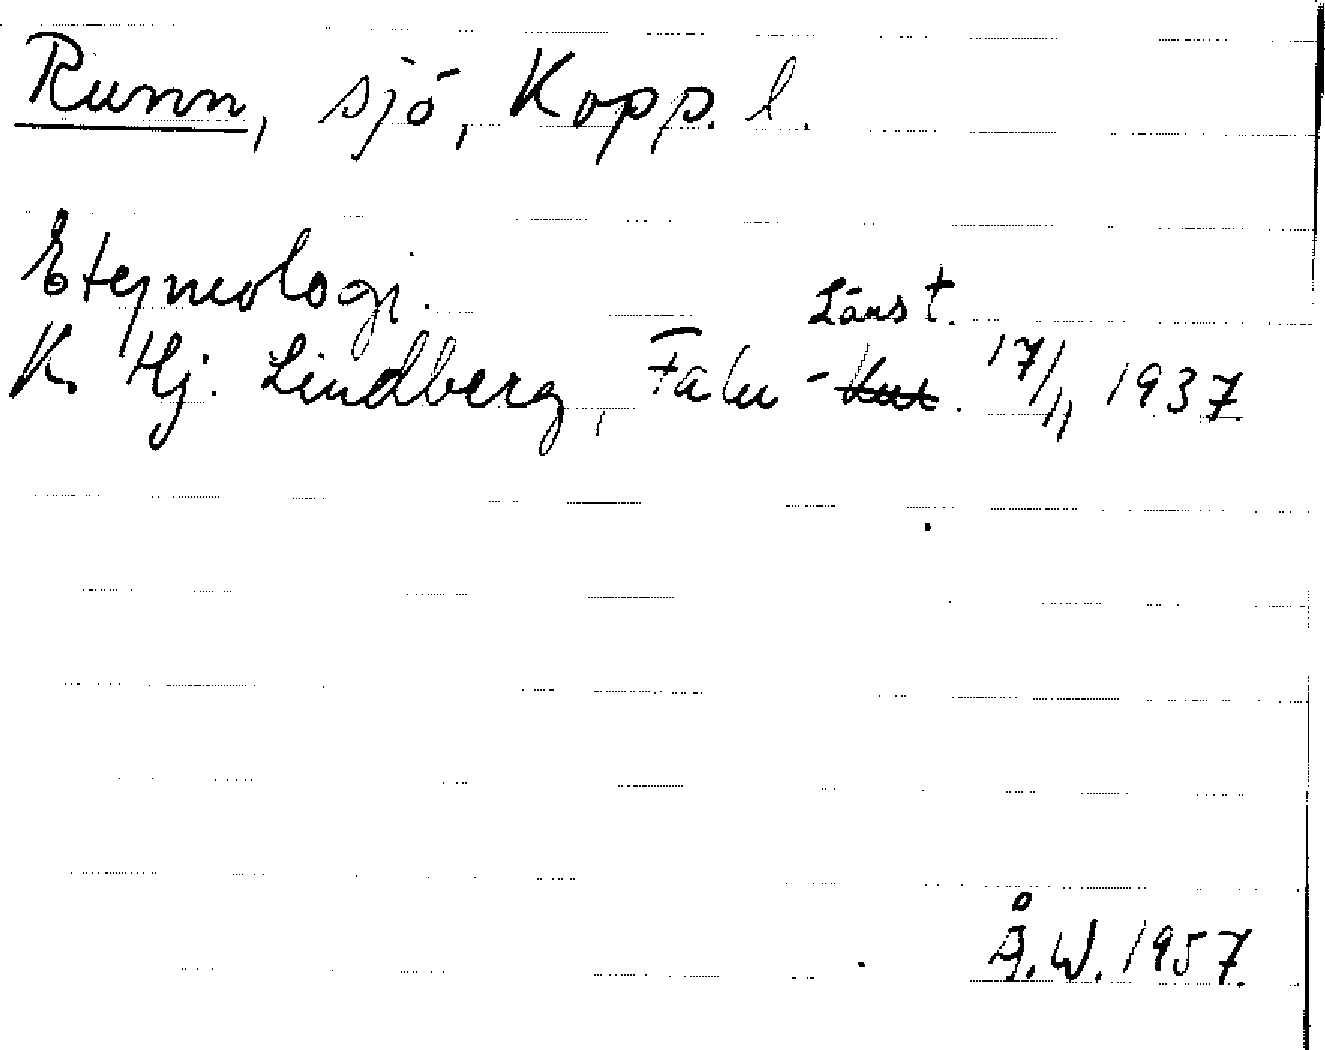 Runn, sjö, Kopp. l.
Etymologi.
K. Hj. Lindberg, Falu-Länst. 17/11 1937
Å.W. 1957.